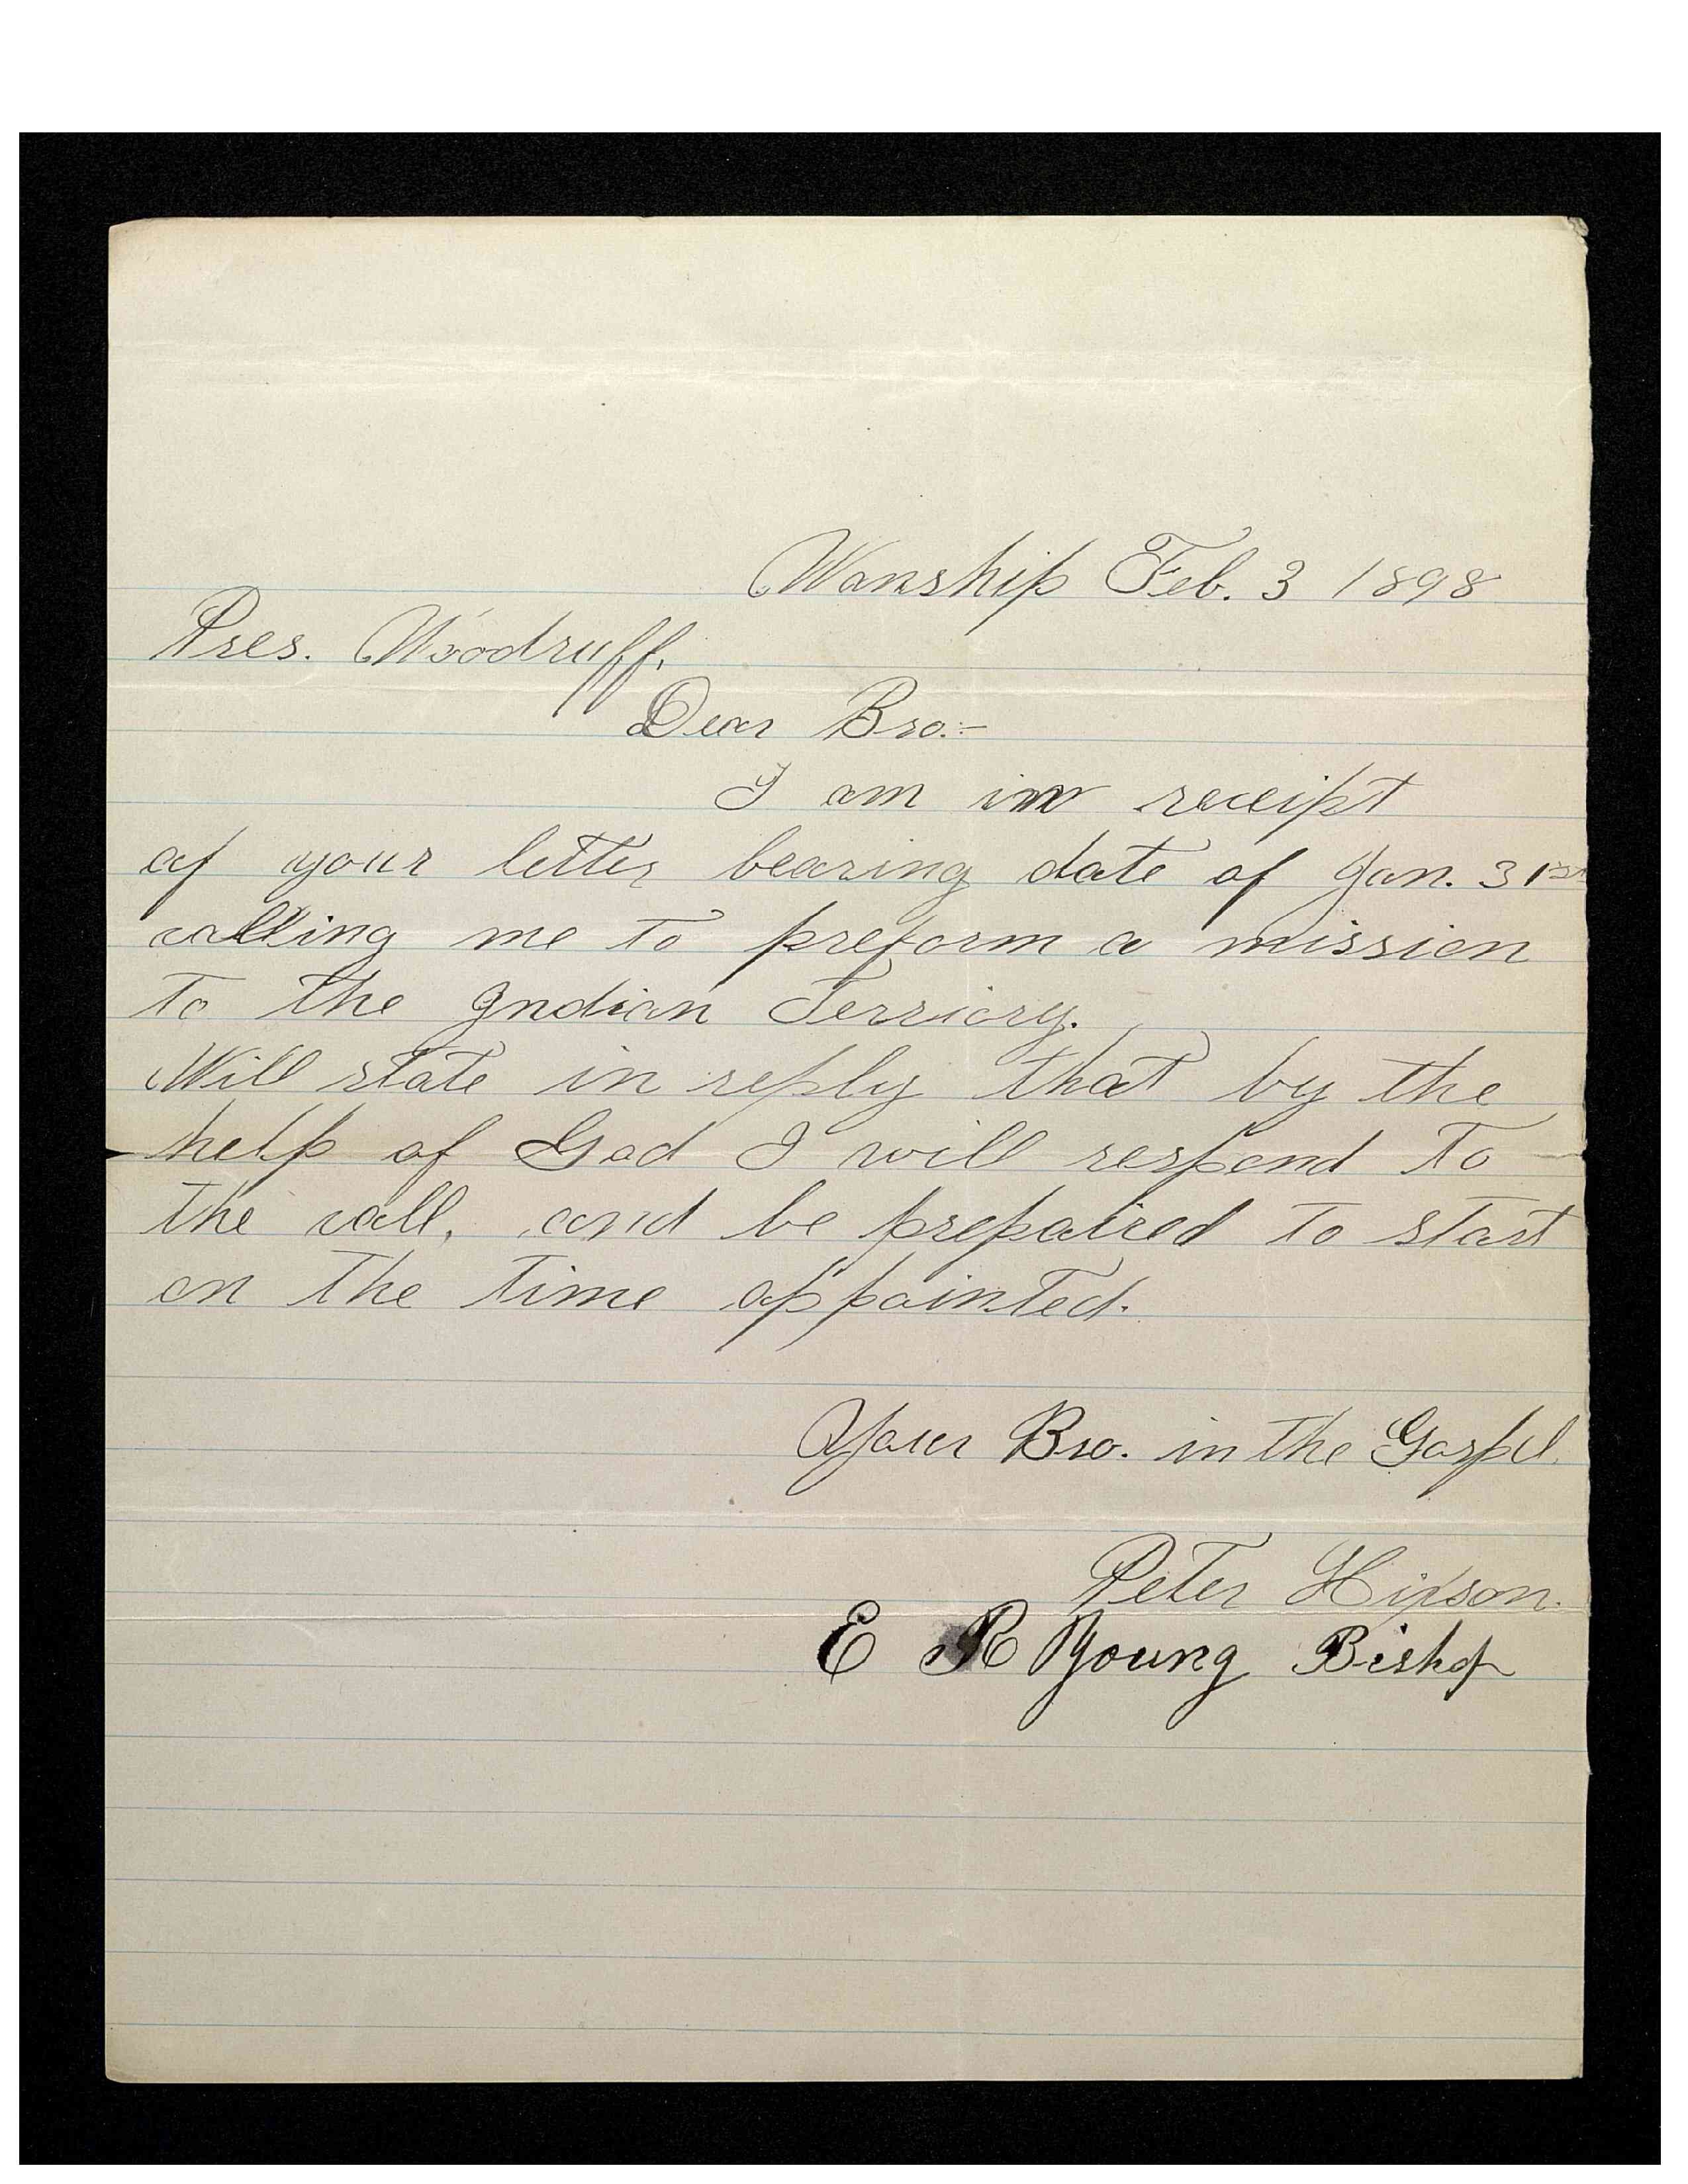 Wanship Feb. 3 1898
Pres. Woodruff.
Dear Bro.-
I am in receipt
of your letter bearing date of Jan. 31st
calling me to preform a mission
to the Indian Terriory.
Will state in reply that by the
help of God I will respond to
the call, and be prepaired to start
on the time appointed.
Your Bro. in the Gospel.
Peter Hixson.
E R Young Bishop